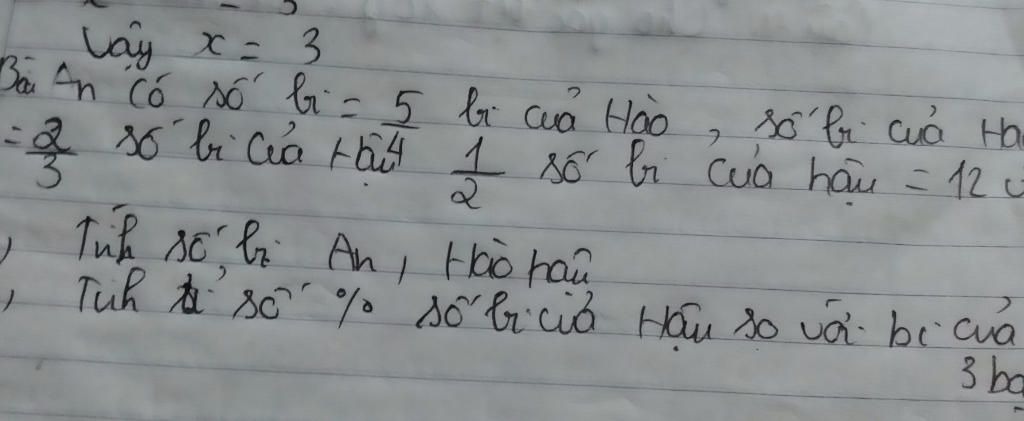 Vậy x = 3
Bài An có số bi = 5/4 bi của Hào, số bi của
= 2/3 số bi của Hậu 1/2 số bi của hậu = 12
Tính số bi An, Hào hậu
Tính tỉ số % số bi của Hậu so với bi của
3 bạ